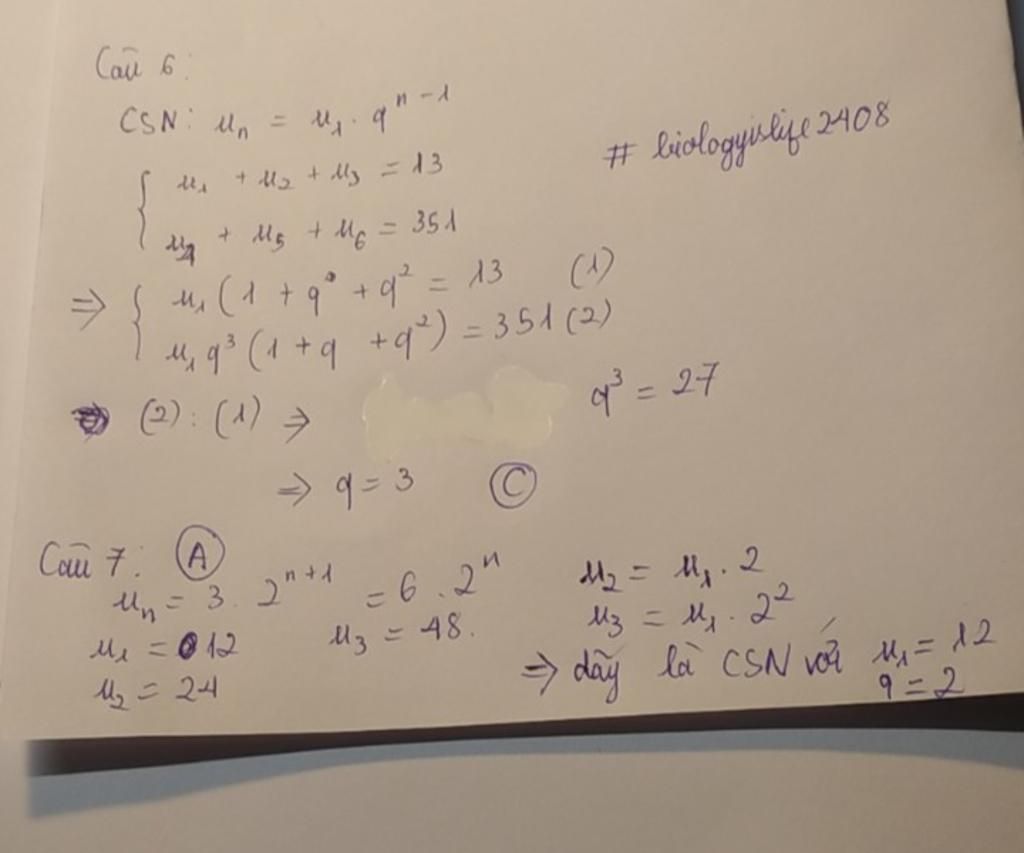 Câu 6:
CSN: uₙ = u₁ . qⁿ⁻¹
# biologyislife2408
{ u₁ + u₂ + u₃ = 13
u₄ + u₅ + u₆ = 351
⇒ { u₁ (1 + q + q² = 13 (1)
u₁ q³ (1 + q + q²) = 351 (2)
(2) : (1) ⇒ q³ = 27
⇒ q = 3 Ⓒ
Câu 7: Ⓐ
uₙ = 3 . 2ⁿ⁺¹ = 6 . 2ⁿ
u₁ = 12 u₃ = 48.
u₂ = 24
u₂ = u₁ . 2
u₃ = u₁ . 2²
⇒ dãy là CSN với u₁ = 12
q = 2